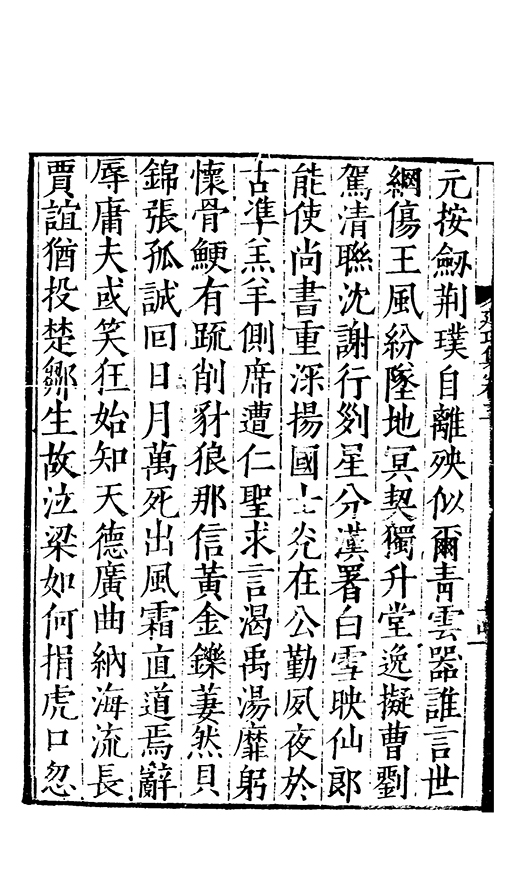 元按劍荆璞自離殃似爾青雲器誰言世
網傷王風紛墜地冥契獨升堂逸擬曹劉
駕清聯沈謝行剡星分漢署白雪映仙郎
能使尚書重深揚國士光在公勤夙夜於
古準羔羊側席遭仁聖求言渴禹湯靡躬
懷骨鯁有疏削豺狼那信黃金鑠萋然貝
錦張孤誠回日月萬死出風霜直道焉辭
辱庸夫或笑狂始知天德廣曲納海流長
賈誼猶投楚鄒生故泣梁如何捐虎口忽